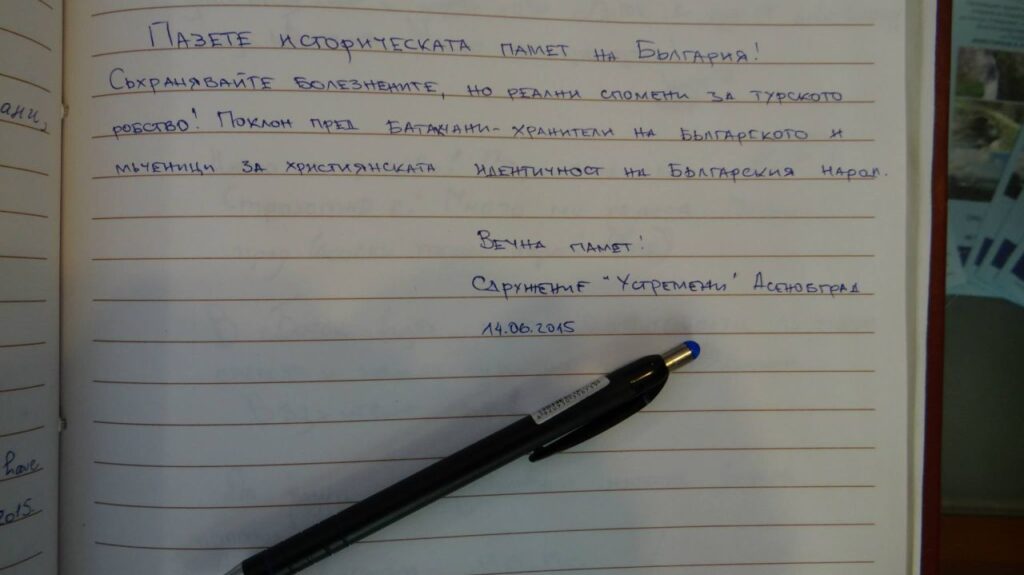 Пазете историческата памет на България!
Съхранявайте болезнените, но реални спомени за турското
робство! Поклон пред батакчани - хранители на българското и
мъченици за християнската идентичност на българския народ.
Вечна памет!
Сдружение "Устремени" Асеновград
14.06.2015
ани,
have
2015.